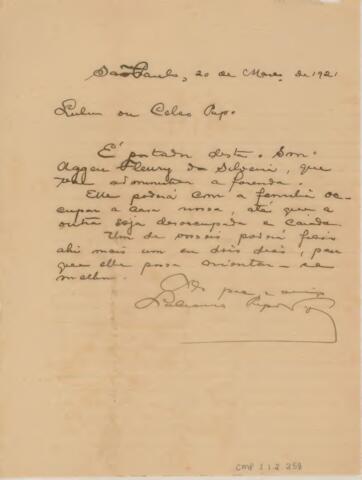 São Paulo, 20 de Março de 1921
Rubem ou Celso Pupo.
É portador desta o Snr.
Aggeu Fleury da Silveira, que
vae administrar a fazenda.
Elle poderá com a familia oc-
cupar a casa nossa, até que a
outra seja desoccupada e caiada.
Um de vocês poderá ficar
ahi mais um ou dois dias, para
que elle possa orientar-se
melhor.
Do pae e amigo
CMP 1.1.2.258